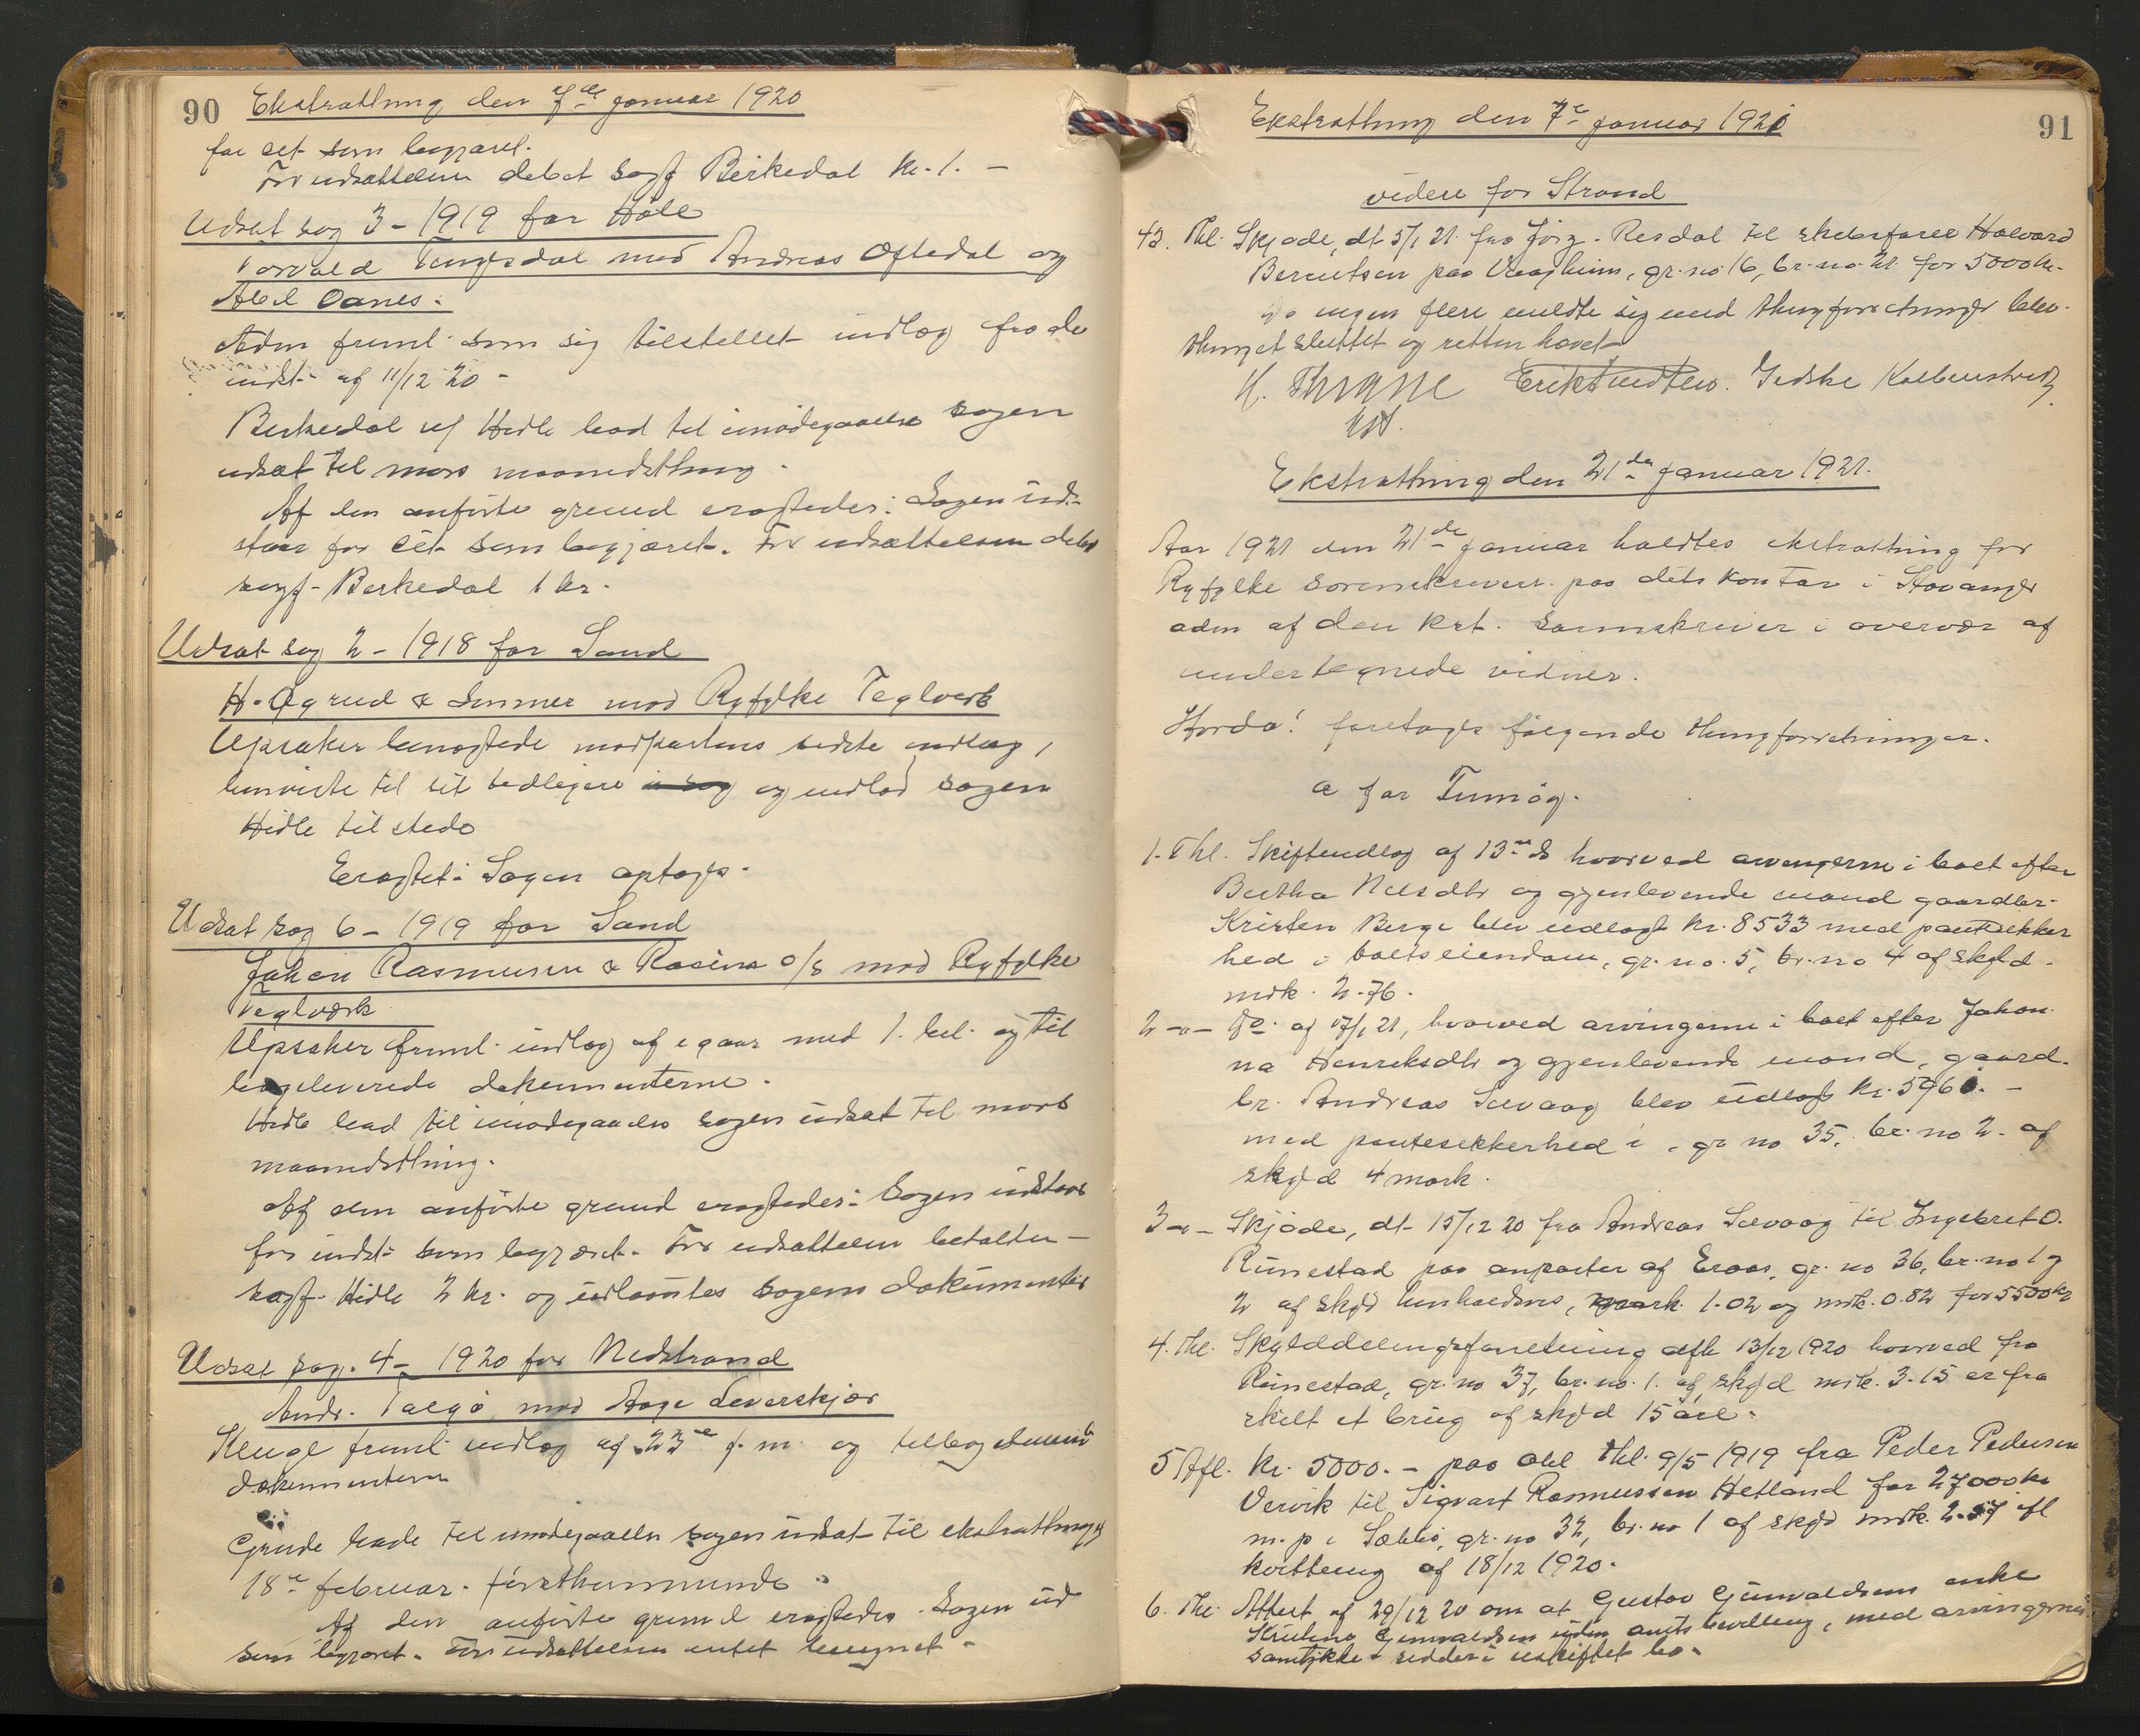 90 Ekstrathing den 7de januar 1920
for det som begjæret.
For udsættelsen debet sagf Birkedal kr. 1. –
Udsat sag 3 – 1919 for Höle
Torvald Tengesdal mod Andreas Oftedal og
Abel Oanes.
Adm freml. som sig tilstillet indlæg fra de
indst. af 11/12 20 –
Birkedal v/ Hidle bad til imødegaaelse sagen
udsat til mars maanedsthing.
Af den anførte grund eragtedes: Sagen ud-
staar for det som begjæret. For udsættelsen debet
sagf. Birkedal 1 kr.
Udsat sag 2 – 1918 for Sand
H. Øgrud & Sönner mod Ryfylke Teglverk
Opsaker benægtede modpartens sidste indlæg,
henviste til sit tidligere og indlod sagen
Hidle tilstede
Eragtet: Sagen optages.
Udsat sag 6 – 1919 for Sand
Johan Rasmusen & Racine o/s mod Ryfylke
Teglværk
Opsaker freml. indlæg af igaar med 1. bil. og til
bageleverede dokumenterne.
Hidle bad til imødegaaelse sagen udsat til mars
maanedsthing.
Af den anførte grund eragtedes: Sagen udstaar
for indst. som begjæret. For udsættelsen betalte –
sagf. Hidle 2 kr. og udlaantes sagens dokumenter
Udsat sag. 4 – 1920 for Nedstrand
Andr. Talgö mod Aage Leverskjær
Kluge freml. indlæg af 23de f. m. og tilbag
dokumenterne
Grude bade til imødegaaelse sagen udsat til ekstrathinget
18de februar. førsthommende.
Af den anførte grund eragtedes. Sagen ud
som begjæret. For udsættelsen intet beregnet –
Ekstrathing den 7de januar 1921 91
videre for Strand
43. Thl. Skjøde, dt 5/1 21. fra Jörg. Resdal til skibsfører Halvard
Berentsen paa Vaagheim, gr. no 16, br. no 21. for 5000 kr.
Da ingen flere meldte sig med thingforretninger blev
thinget sluttet og retten hævet
H. Thrane Erik Knudsen. Gidske Kolbenstvedt
Ekstrathing den 21de januar 1921.
Aar 1921 den 21de januar holdtes ekstrathing for
Ryfylke sorenskriveri paa dets kontor i Stavanger
adm af den kst. sorenskriver i overvær af
undertegnede vidner.
Hvorda: foretoges følgende thingforretninger.
a for Finnöy.
1. Thl. Skifteudlæg af 13de ds hvorved arvingerne i boet efter
Bertha Nilsdtr og gjenlevende mand gaardbr.
Kristen Berge blev udlagt kr. 8533 med pantesikker
hed i boets eiendom, gr. no. 5, br. no 4 af skyld –
mrk. 2.76.
2 –"– Do. af 17/1 21, hvorved arvingerne i boet efter Johan
na Henriksdtr og gjenlevende mand, gaard.
br. Andreas Sevaag blev udlagt kr. 5960. –
med pantesikkerhed i gr no 35, br. no 2. af
skyld 4 mark.
3 –"– Skjøde, dt 15/12 20 fra Andreas Sevaag til Ingebret O.
Rünestad paa anparter af Eraas, gr. no 36, br. no 1 og
2 af skyld henholdsvis, mark. 1.02 og mrk. 0.82 for 5500 kr
4. Thl. Skylddelingsforretning afh 13/12 1920 hvorved fra
Rünestad, gr. no 37, br. no. 1. af skyld mrk. 3.15 er fra
skilt et brug af skyld 15 øre.
5 Afl. kr. 5000. – paa obl. thl. 9/5 1919 fra Peder Pedersen
Vervik til Sigvart Rasmussen Hetland for 27000 kr
m. p i Sæbbö, gr. no 32, br. no 1 af skyld mrk. 2.57 ifl
kvittering af 18/12 1920.
6. Thl. Attest af 29/12 20 om at Gustav Günvaldsens enke
Kristine Günvaldsen uden amtsbevilling, med arvingernes
samtykke – sidder i uskiftet bo –